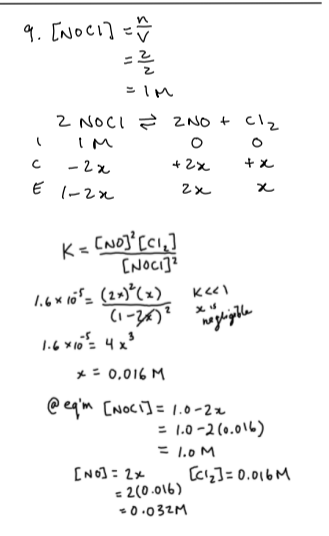 9. [NOCl] = n/V
= 2/2
= 1M
2 NOCl ⇌ 2NO + Cl₂
I 1M 0 0
C -2x +2x +x
E 1-2x 2x x
K = [NO]²[Cl₂] / [NOCl]²
1.6 × 10⁻⁵ = (2x)²(x) / (1-2x)² K<<1 x is negligible
1.6 × 10⁻⁵ = 4x³
x = 0.016 M
@ eq'm [NOCl] = 1.0-2x
= 1.0-2(0.016)
= 1.0 M
[NO] = 2x [Cl₂] = 0.016M
= 2(0.016)
= 0.032M